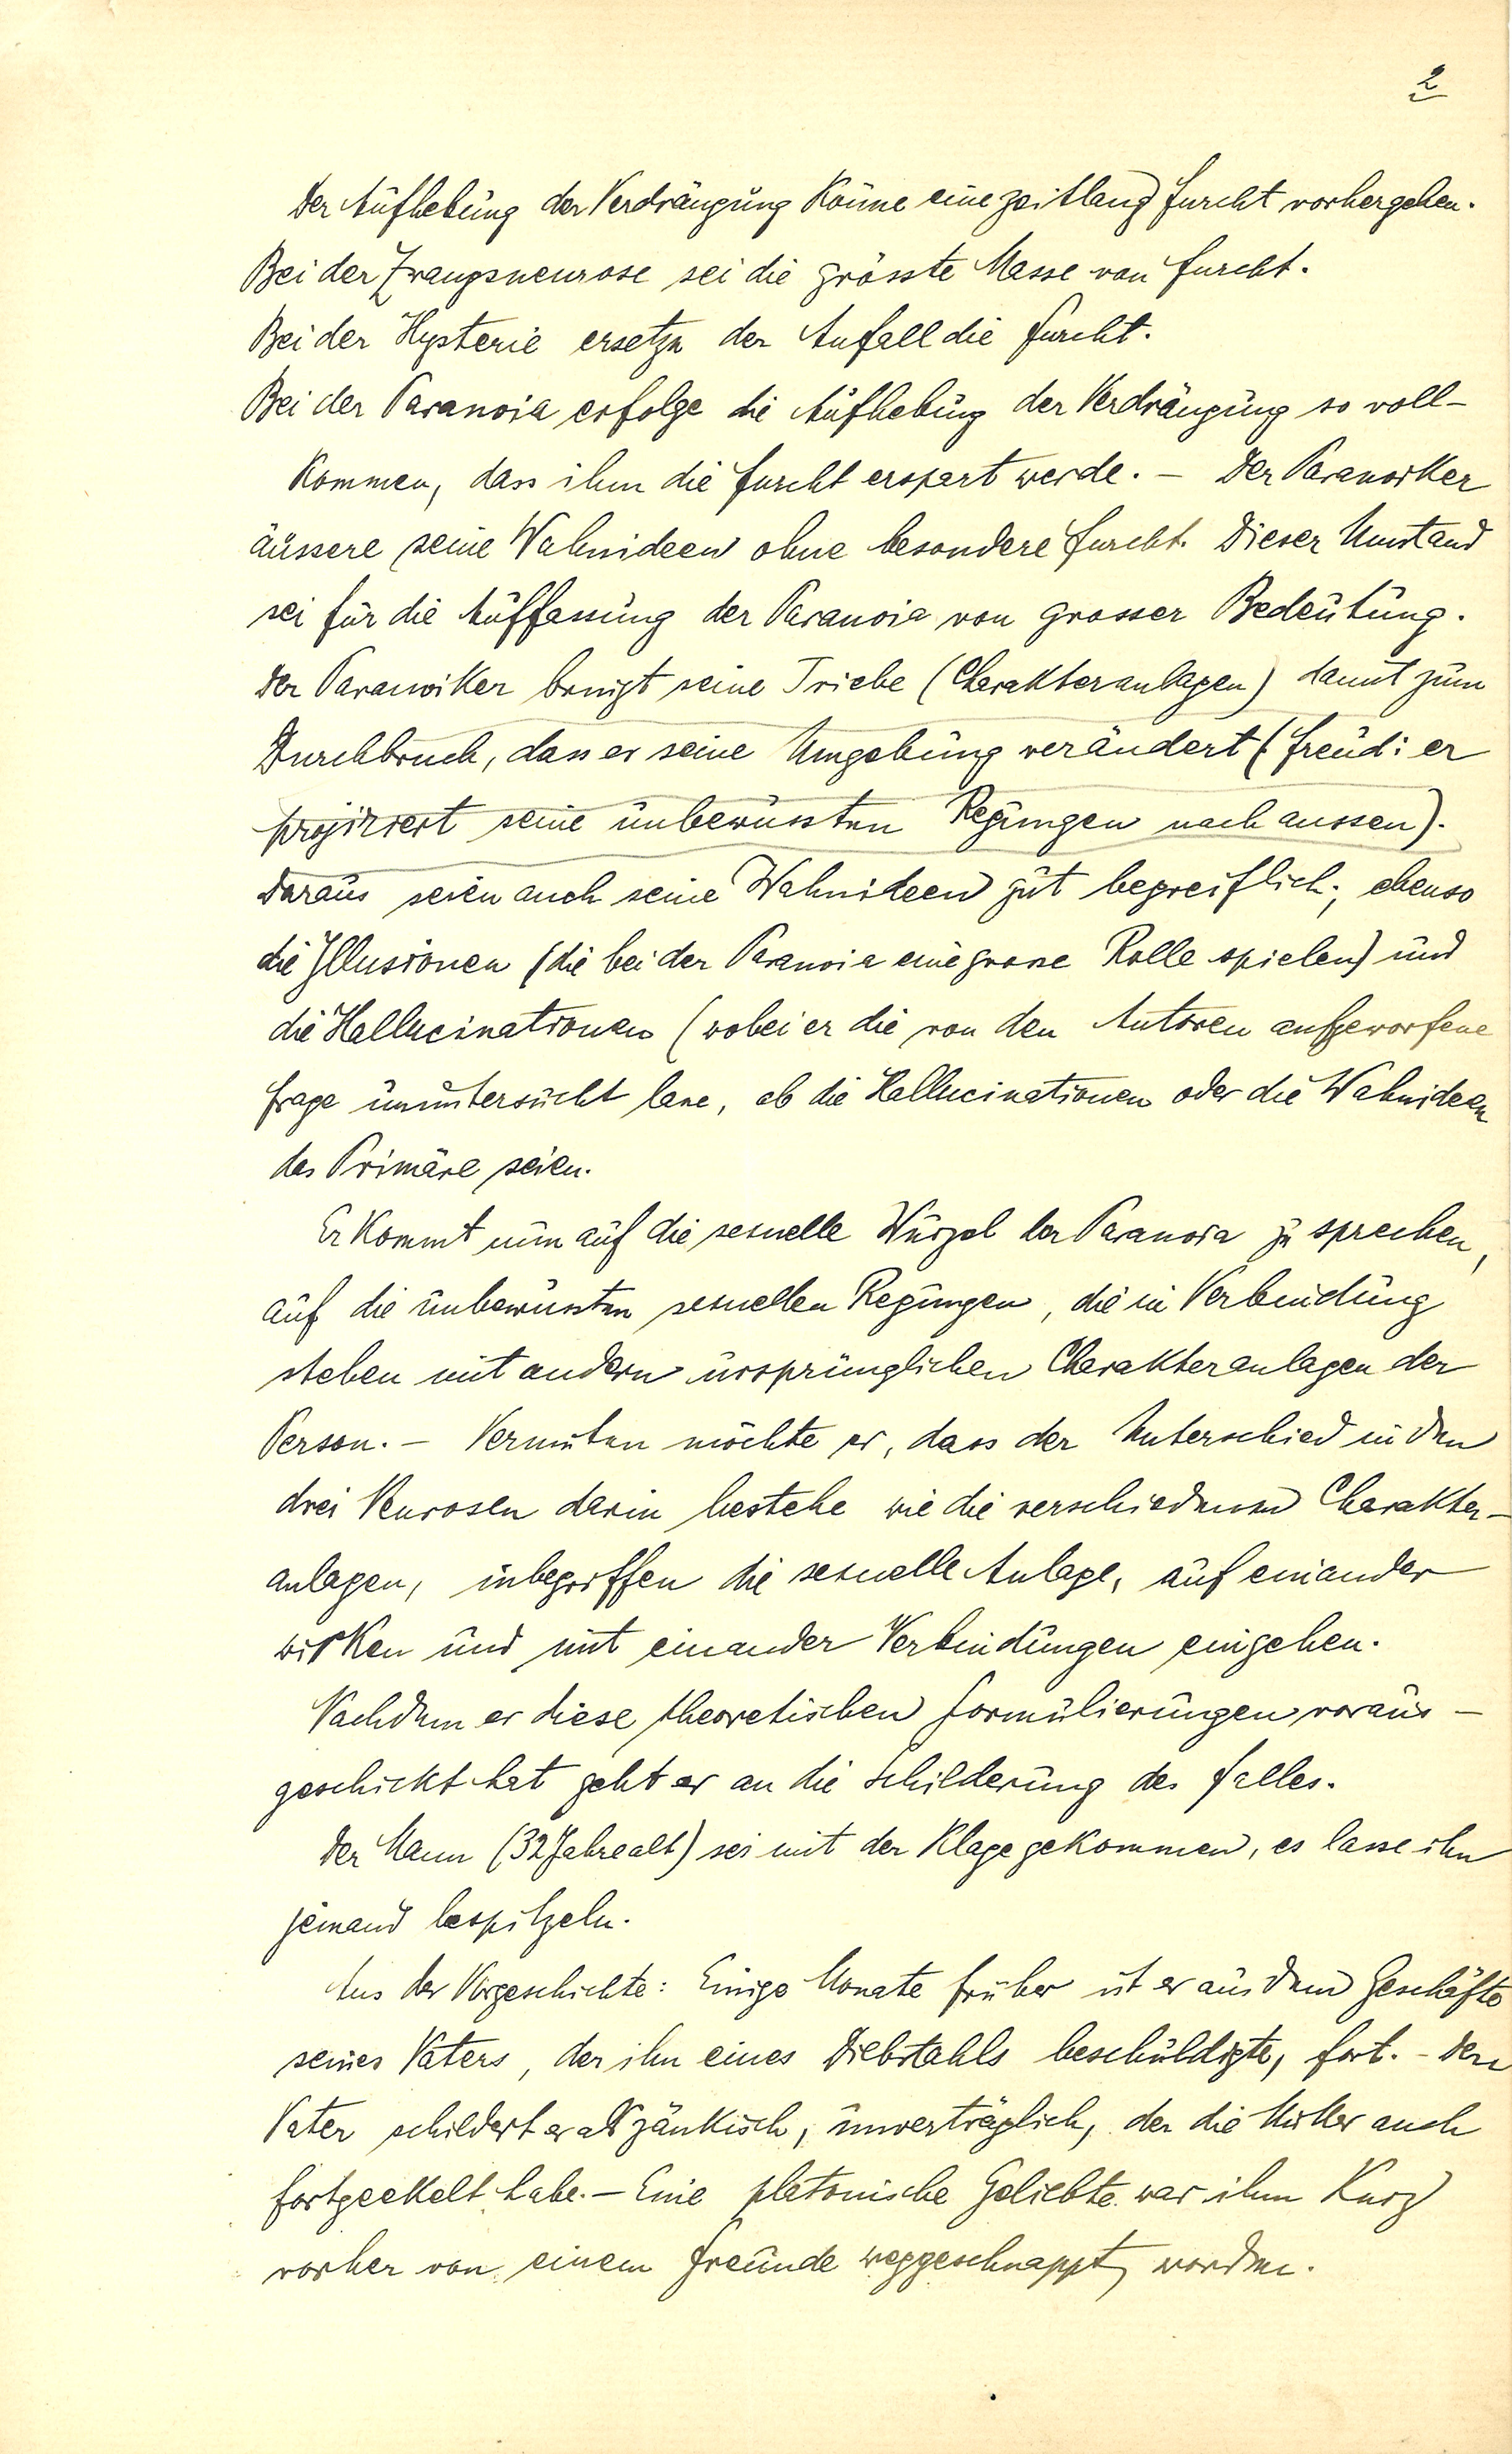 2
Der Aufhebung der Verdrängung könne eine zeitlang Furcht vorhergehen.
Bei der Zwangsneurose sei die grösste Masse von Furcht.
Bei der Hysterie ersetze der Anfall die Furcht.
Bei der Paranoia erfolge die Aufhebung der Verdrängung so voll-
kommen, dass ihm die Furcht erspart werde. – Der Paranoiker
äussere seine Wahnideen ohne besondere Furcht. Dieser Umstand
sei für die Auffassung der Paranoia von grosser Bedeutung.
Der Paranoiker bringt seine Triebe (Charakteranlagen) damit zum
Durchbruch, dass er seine Umgebung verändert (Freud: er
projiziert seine unbewussten Regungen nach aussen).
Daraus seien auch seine Wahnideen gut begreiflich; ebenso
die Illusionen (die bei der Paranoia eine grosse Rolle spielen) und
die Hallucinationen (wobei er die von den Autoren aufgeworfene
Frage ununtersucht lasse, ob die Hallucinationen oder die Wahnideen
das Primäre seien.
Er kommt nun auf die sexuelle Wurzel der Paranoia zu sprechen,
auf die unbewussten sexuellen Regungen, die in Verbindung
stehen mit andern ursprünglichen Charakteranlagen der
Person. – Vermuten möchte er, dass der Unterschied in den
drei Neurosen darin bestehe wie die verschiedenen Charakter-
anlagen, inbegriffen die sexuelle Anlage, auf einander
wirken und mit einander Verbindungen eingehen.
Nachdem er diese theoretischen Formulierungen voraus-
geschickt hat geht er an die Schilderung des Falles.
Der Mann (32 Jahre alt) sei mit der Klage gekommen, es lasse ihn
jemand bespitzeln.
Aus der Vorgeschichte: Einige Monate früher ist er aus dem Geschäfte
seines Vaters, der ihn eines Diebstahls beschuldigte, fort. – Den
Vater schildert er als zänkisch, unverträglich, der die Mutter auch
fortgeekelt habe. – Eine platonische Geliebte war ihm kurz
vorher von einem Freunde weggeschnappt worden.